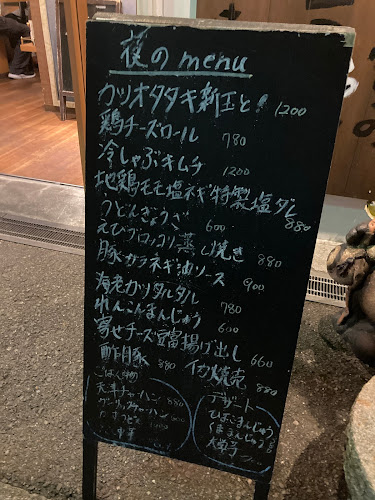 夜のmenu
カツオタタキ新玉と! 1200
鶏チーズロール 780
冷しゃぶキムチ 1200
地鶏モモ塩ネギ特製塩ダレ 880
うどんぎょうざ 600
えびブロッコリ蒸し焼き 880
豚カラネギ油ソース 900
海老カツタルタル 780
れんこんまんじゅう 600
寄せチーズ豆富揚げ出し 660
酢豚 880 イカ焼売 880
ごはん物
天津チャーハン 880
デザート
ひよこまんじゅう
くままんじゅう
大学芋